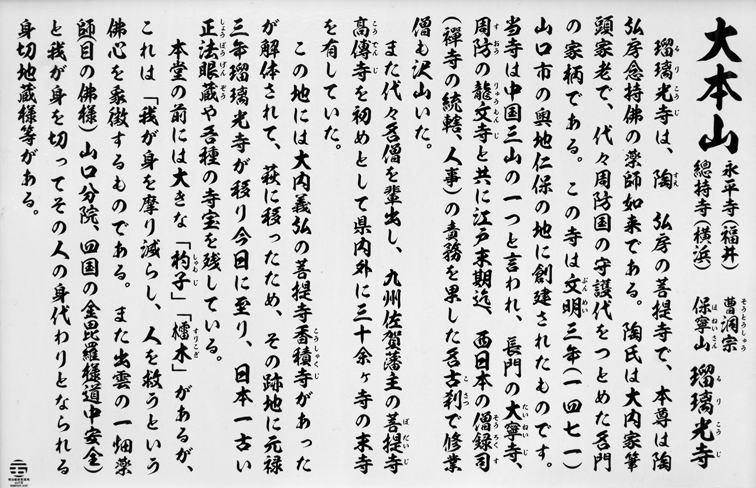 大本山
永平寺(福井)
總持寺(横浜)
曹洞宗
そうとうしゅう
保寧山
ほねいさん
瑠璃光寺
るりこうじ
瑠璃光寺は、陶 弘房の菩提寺で、本尊は陶
るりこうじ すえ
弘房念持佛の薬師如来である。陶氏は大内家筆
頭家老で、代々周防国の守護代をつとめた名門
の家柄である。この寺は文明三年(一四七一)
ぶんめい
山口市の奥地仁保の地に創建されたものです。
当寺は中国三山の一つと言われ、長門の大寧寺、
たいねいじ
周防の龍文寺と共に江戸末期迄、西日本の僧録司
すおう りゅうもんじ そうろくす
(禅寺の統轄、人事)の責務を果した名古刹で修業
こさつ
僧も沢山いた。
また代々名僧を輩出し、九州佐賀藩主の菩提寺
ぼだいじ
高傳寺を初めとして県内外に三十余ヶ寺の末寺
こうでんじ
を有していた。
この地には大内義弘の菩提寺香積寺があった
こうしゃくじ
が解体されて、萩に移ったため、その跡地に元禄
三年瑠璃光寺が移り今日に至り、日本一古い
正法眼蔵や各種の寺宝を残している。
しょうぼうげんぞう
本堂の前には大きな「杓子」「櫺木」があるが、
しゃむじ すりこぎ
これは「我が身を摩り減らし、人を救うという
佛心を象徴するものである。また出雲の一畑薬
師(目の佛様)山口分院、四国の金毘羅様道中安全)
と我が身を切ってその人の身代わりとなられる
身切地蔵様等がある。